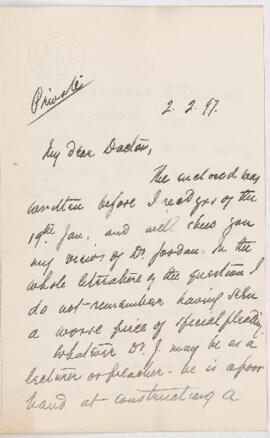 Private
2.2.97.
My dear Doctor,
The enclosed was
written before I recd yrs of the
19th Jan, and will shew you
my views of Dr. Jordan. In the
whole literature of the question I
do not remember having seen
a worse piece of special pleading.
Whatever Dr. J. may be as a
lecturer or preacher he is a poor
hand at constructing a